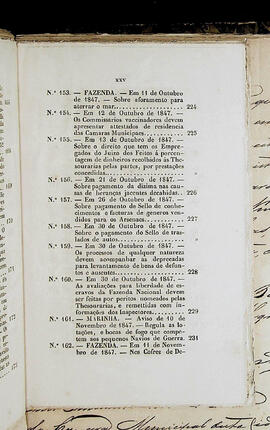 XXV
N.º 153. — FAZENDA. — Em 11 de Outubro
de 1847. — Sobre aforamento para
aterrar o mar. 224
N.º 154. — Em 12 de Outubro de 1847. —
Os Commissarios vaccinadores devem
apresentar attestados de residencia
das Camaras Municipaes. 225
N.º 155. — Em 13 de Outubro de 1847. —
Sobre o direito que tem os Empre-
gados do Juizo dos Feitos á porcen-
tagem de dinheiros recolhidos ás The-
sourarias pelas partes, por prestações
concedidas.
N.º 156. — Em 21 de Outubro de 1847. —
Sobre pagamento da dizima nas cau-
sas de heranças jacentes decahidas.
N.º 157. — Em 26 de Outubro de 1847. —
Sobre pagamento de Sello de conhe-
cimentos e facturas de generos ven-
didos para os Arsenaes. 227
N.º 158. — Em 30 de Outubro de 1847. —
Sobre o pagamento do Sello de tras-
lados de autos.
N.º 159. — Em 30 de Outubro de 1847. —
Os processos de qualquer natureza
devem acompanhar as deprecadas
para levantamento de bens de defun-
tos e ausentes. 228
N.º 160. — Em 30 de Outubro de 1847. —
As avaliações para liberdade de es-
cravos da Fazenda Nacional devem
ser feitas por peritos nomeados pelas
Thesourarias, e remettidas com in-
formações dos Inspectores. 229
N.º 161. — MARINHA. — Aviso de 10 de
Novembro de 1847. — Regula as lo-
tações, e bocas de fogo que compe-
tem aos pequenos Navios de Guerra. 231
N.º 162. — FAZENDA. — Em 11 de Novem-
bro de 1847. — Nos Cofres de De-